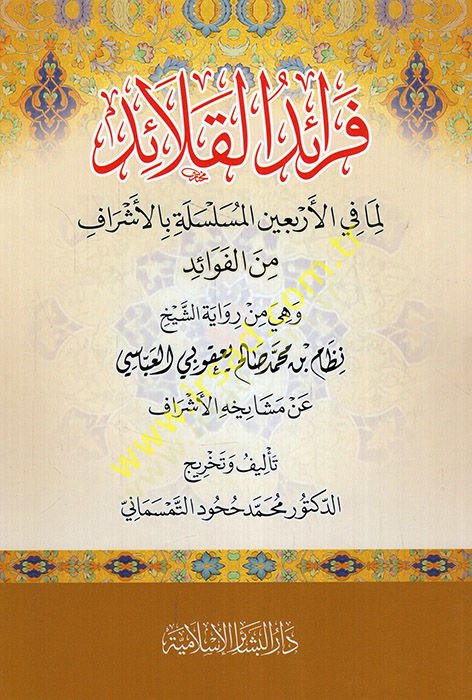 فَرَائِدُ القَلَائِد
لِمَا فِي الأَرْبَعِينَ المُسَلْسَلَةِ بِالأَشْرَافِ
مِنَ الفَوَائِدِ
وَهِيَ مِنْ رِوَايَةِ الشَّيْخِ
نِظَام بن محمّد صَالح يَعقوبي العَبّاسي
عَنْ مَشَايِخِهِ الأَشْرَافِ
تَأْلِيفُ وَتَخْرِيجُ
الدّكتور مُحَمَّد حَحُود التَّمْسَمَانِيّ
دَارُ البَشَائِرِ الإِسْلَامِيَّة